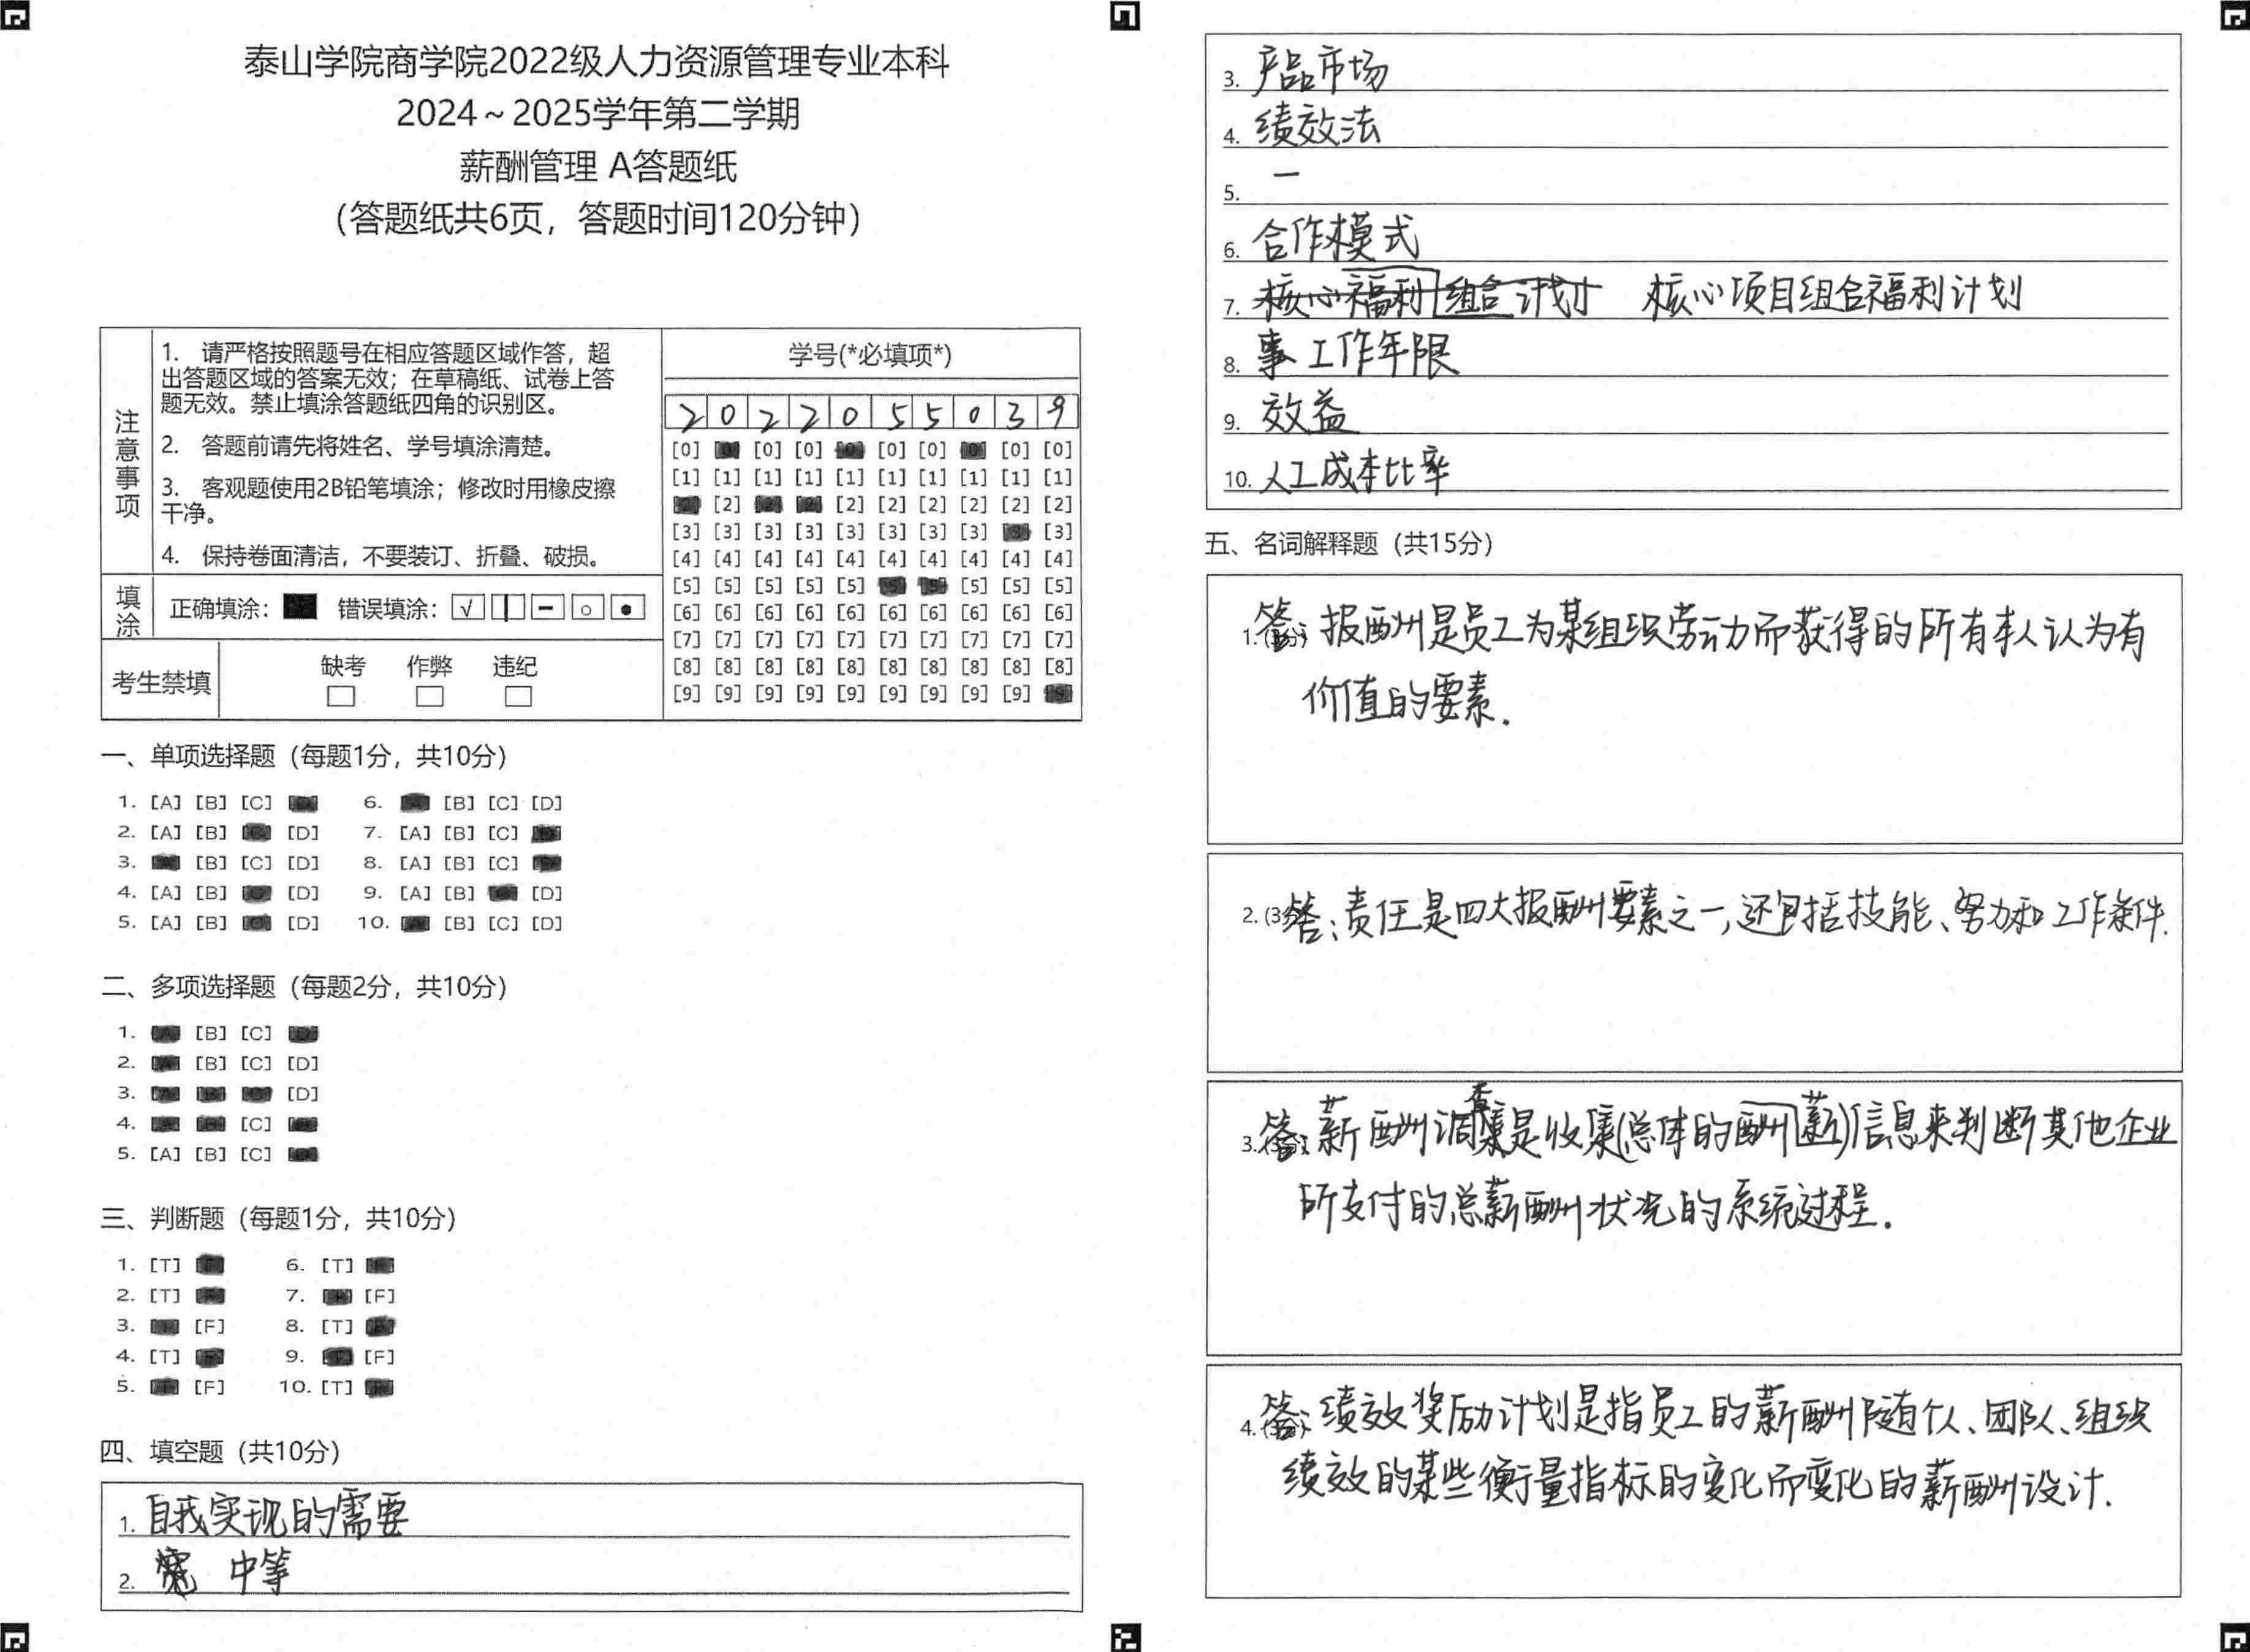 泰山学院商学院2022级人力资源管理专业本科
2024～2025学年第二学期
薪酬管理 A答题纸
（答题纸共6页，答题时间120分钟）
注意事项
1. 请严格按照题号在相应答题区域作答，超
出答题区域的答案无效；在草稿纸、试卷上答
题无效。禁止填涂答题纸四角的识别区。
2. 答题前请先将姓名、学号填涂清楚。
3. 客观题使用2B铅笔填涂；修改时用橡皮擦
干净。
4. 保持卷面清洁，不要装订、折叠、破损。
填涂 正确填涂： 错误填涂： √
考生禁填 缺考 作弊 违纪
学号(*必填项*)
2 0 2 2 0 5 5 0 3 9
[0] [0] [0] [0] [0] [0] [0] [0] [0] [0]
[1] [1] [1] [1] [1] [1] [1] [1] [1] [1]
[2] [2] [2] [2] [2] [2] [2] [2] [2] [2]
[3] [3] [3] [3] [3] [3] [3] [3] [3] [3]
[4] [4] [4] [4] [4] [4] [4] [4] [4] [4]
[5] [5] [5] [5] [5] [5] [5] [5] [5] [5]
[6] [6] [6] [6] [6] [6] [6] [6] [6] [6]
[7] [7] [7] [7] [7] [7] [7] [7] [7] [7]
[8] [8] [8] [8] [8] [8] [8] [8] [8] [8]
[9] [9] [9] [9] [9] [9] [9] [9] [9] [9]
一、单项选择题（每题1分，共10分）
1. [A] [B] [C] [D] 6. [A] [B] [C] [D]
2. [A] [B] [C] [D] 7. [A] [B] [C] [D]
3. [A] [B] [C] [D] 8. [A] [B] [C] [D]
4. [A] [B] [C] [D] 9. [A] [B] [C] [D]
5. [A] [B] [C] [D] 10. [A] [B] [C] [D]
二、多项选择题（每题2分，共10分）
1. [A] [B] [C] [D]
2. [A] [B] [C] [D]
3. [A] [B] [C] [D]
4. [A] [B] [C] [D]
5. [A] [B] [C] [D]
三、判断题（每题1分，共10分）
1. [T] [F] 6. [T] [F]
2. [T] [F] 7. [T] [F]
3. [T] [F] 8. [T] [F]
4. [T] [F] 9. [T] [F]
5. [T] [F] 10. [T] [F]
四、填空题（共10分）
1. 自我实现的需要
2. 中等
3. 产品市场
4. 绩效法
5. 一
6. 合作模式
7. 核心福利组合计划 核心项目组合福利计划
8. 工作年限
9. 效益
10. 人工成本比率
五、名词解释题（共15分）
1. (3分) 答：报酬是员工为某组织劳动而获得的所有本人认为有
价值的要素.
2. (3分) 答：责任是四大报酬要素之一,还包括技能、努力和工作条件.
3. (3分) 答：薪酬调查是收集(总体的酬薪)信息来判断其他企业
所支付的总薪酬状况的系统过程.
4. (3分) 答：绩效奖励计划是指员工的薪酬随着个人、团队、组织
绩效的某些衡量指标的变化而变化的薪酬设计.